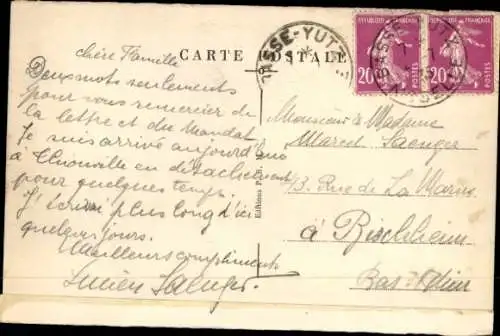 CARTE POSTALE
BASSE-YUTZ
REPUBLIQUE FRANÇAISE
20
20
BASSE-YUTZ
MOSELLE
chère Famille
Deux mots seulements
pour vous remercier de
la lettre et du Mandat
Je suis arrivé aujourd'hui
à Thionville en détachement
pour quelques temps.
J'écrirai plus long d'ici
quelques jours.
Meilleurs compliments
Lucien Saenger
Editions
Monsieur & Madame
Marcel Saenger
13, Rue de La Marne
à Bischheim
Bas-Rhin